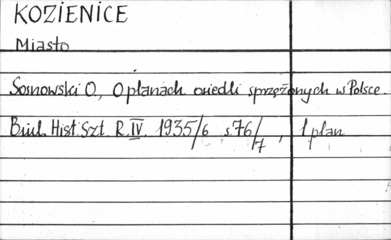 KOZIENICE
Miasto
Sosnowski O., O planach osiedli sprzężonych w Polsce.
Biul. Hist. Szt. R. IV. 1935/6 s. 76/7, 1 plan